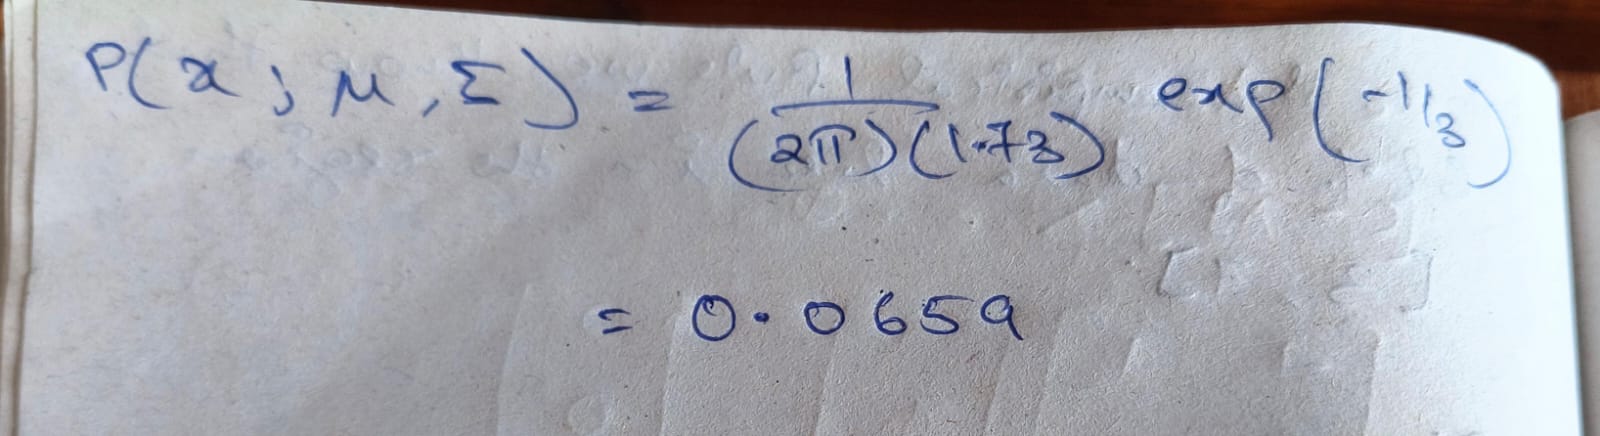 P(x; μ, Σ) = 1/((2π)(1.73)) exp(-1/3)
= 0.0659